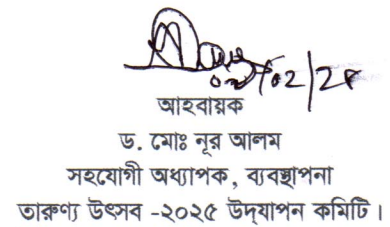 আহবায়ক
ড. মোঃ নূর আলম
সহযোগী অধ্যাপক, ব্যবস্থাপনা
তারুণ্য উৎসব -২০২৫ উদ্‌যাপন কমিটি।